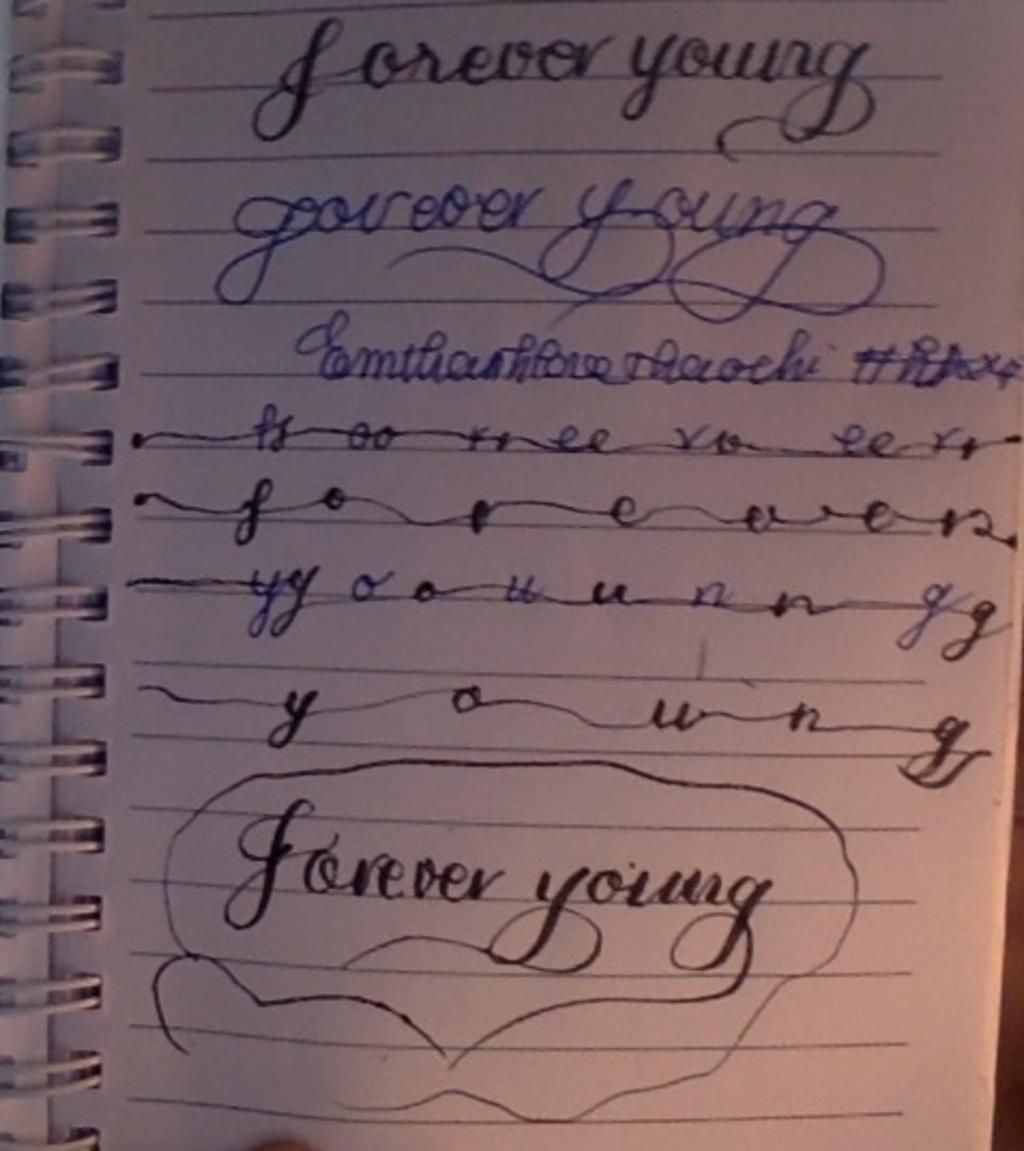 forever young
forever young
ff oo rr ee vv ee rr
f o r e v e r
yy o o u u n n g g
y o u n g
forever young